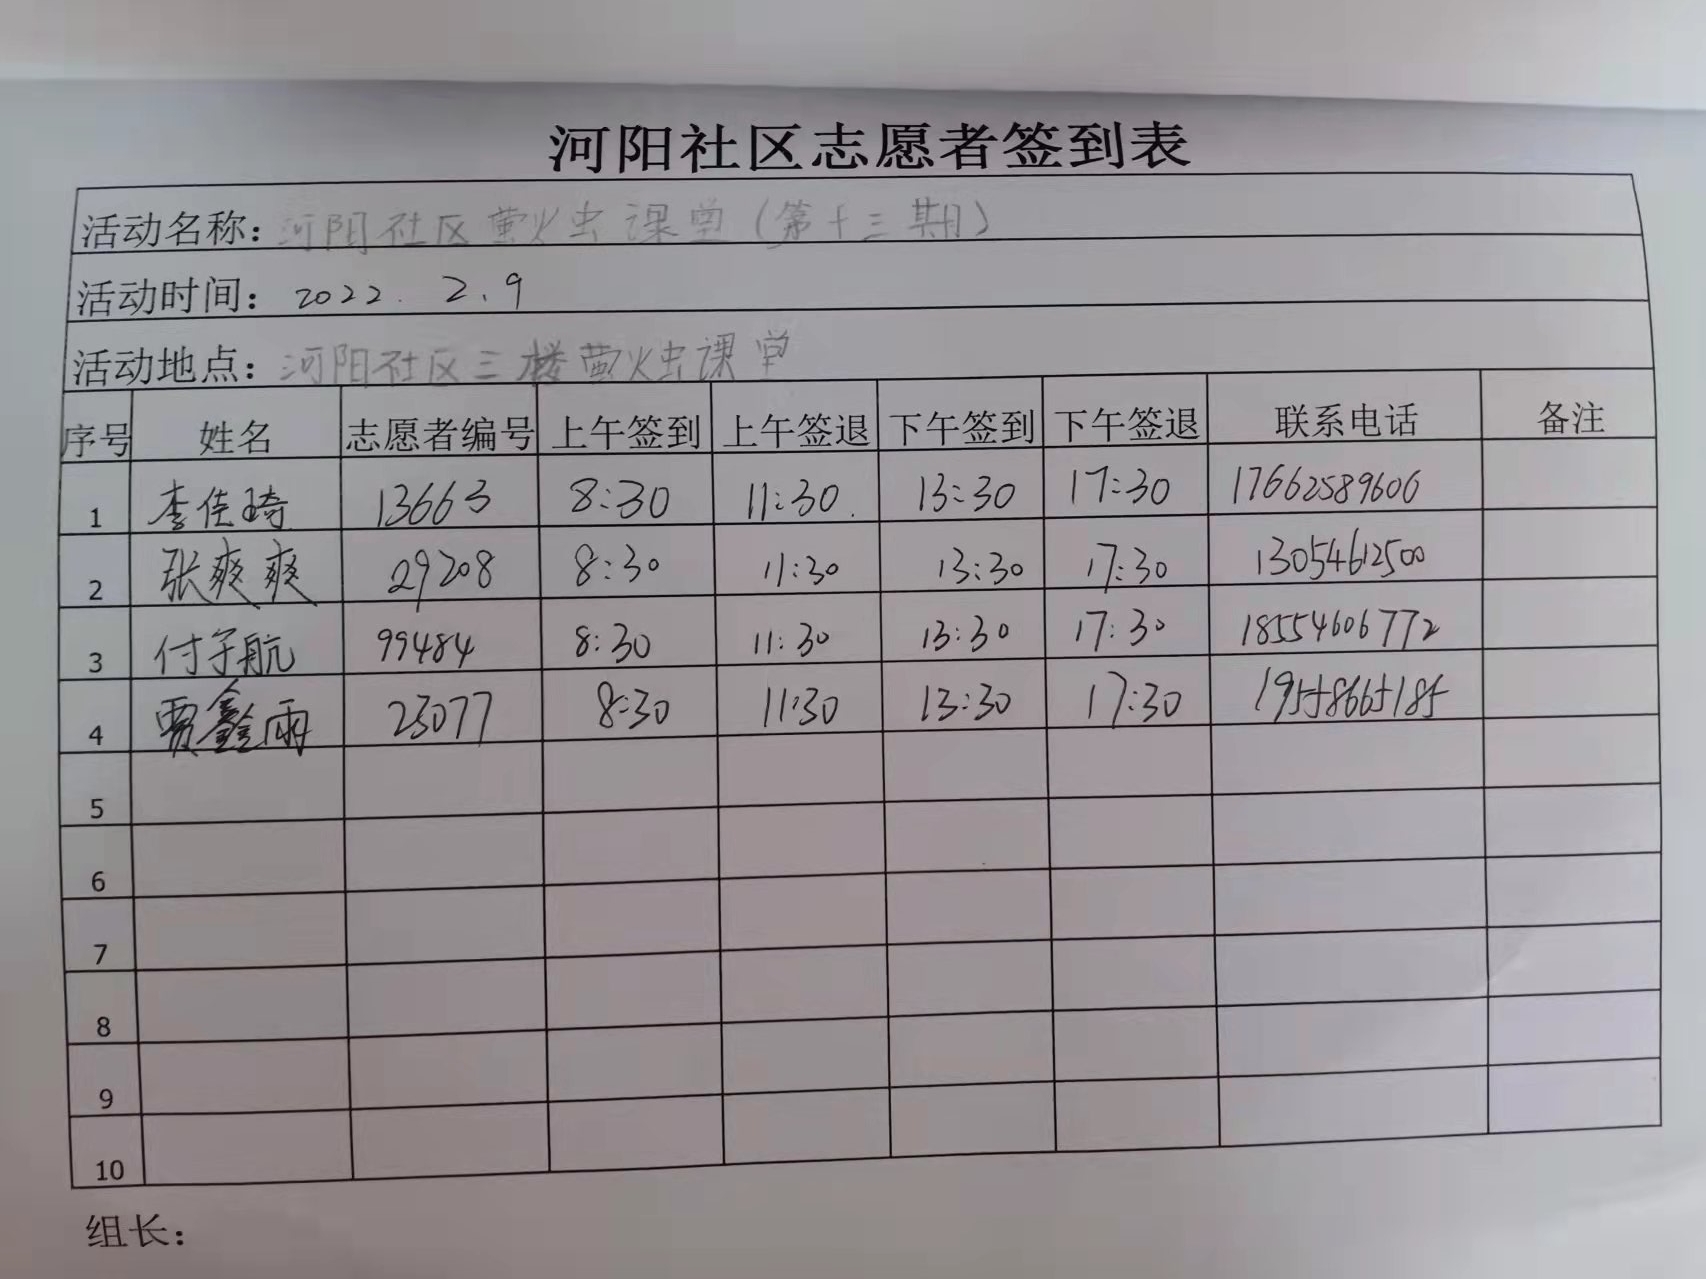 河阳社区志愿者签到表
活动名称：河阳社区萤火虫课堂（第十三期）
活动时间：2022.2.9
活动地点：河阳社区三楼萤火虫课堂
序号 姓名 志愿者编号 上午签到 上午签退 下午签到 下午签退 联系电话 备注
1 李佳琦 13663 8:30 11:30 13:30 17:30 17662589606
2 张爽爽 29208 8:30 11:30 13:30 17:30 13054612500
3 付子航 99484 8:30 11:30 13:30 17:30 18554606772
4 贾鑫雨 23077 8:30 11:30 13:30 17:30 19558665185
5
6
7
8
9
10
组长：